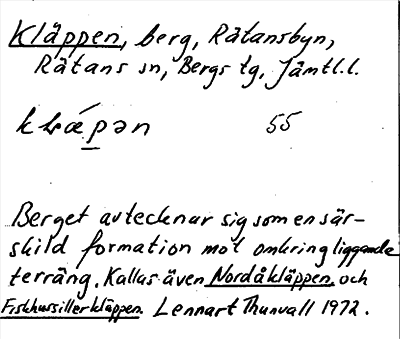 Kläppen, berg, Rätansbyn,
Rätans sn, Bergs tg, Jämtl.l.
55
Berget avtecknar sig som en sär-
skild formation mot omkring liggande
terräng. Kallas även Nordåkläppen och
Fiskhussillerkläppen. Lennart Thunvall 1972.